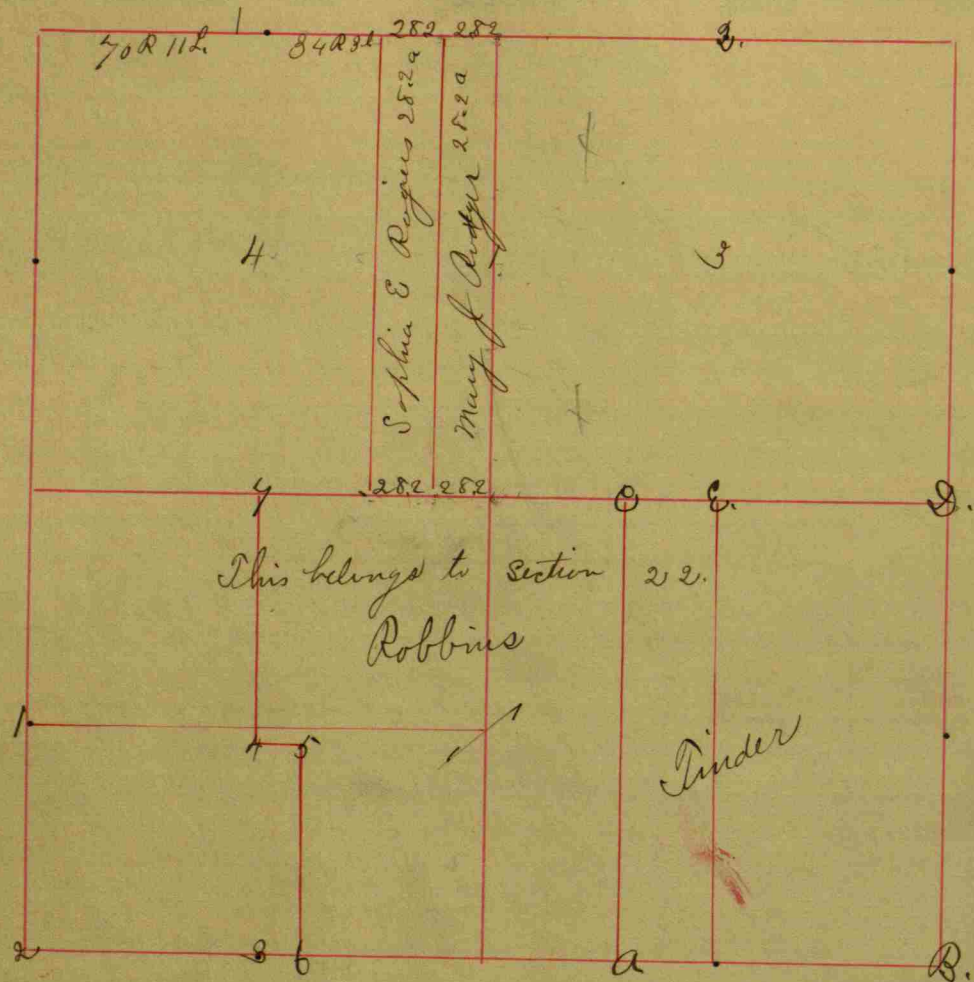 1
70 R 11 L. 84 R 9 L 282 282 2.
Sophia E Rogers 28.2 a
Mary J 28.2 a
4. 6
7 282 282 C E. D.
This belongs to section 22.
Robbins
1
4 5
Tinder
2 3 6 A B.